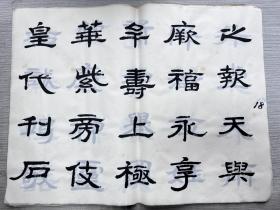 之報天與
厥福永享
牟壽上極
華紫旁伎
皇代刊石
18